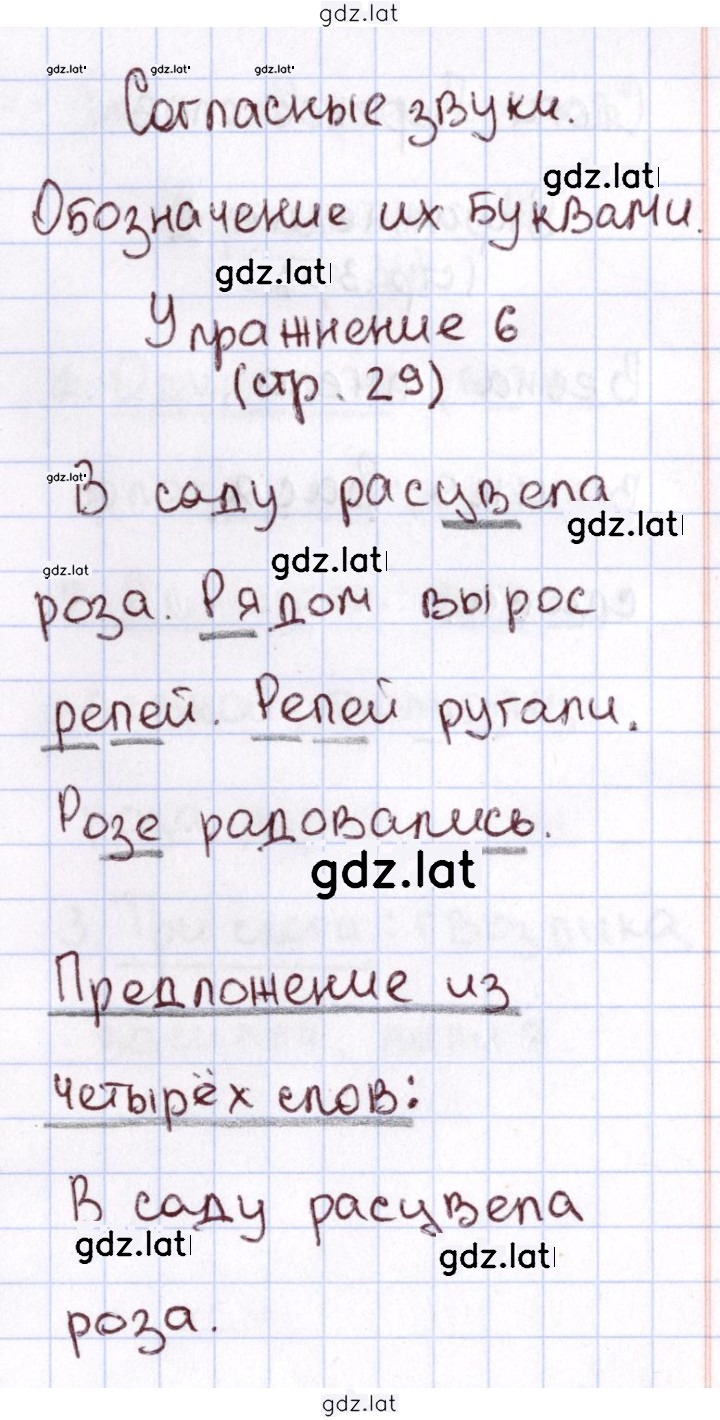 gdz.lat
gdz.lat gdz.lat gdz.lat
Согласные звуки.
gdz.lat
Обозначение их буквами.
gdz.lat
Упражнение 6
(стр. 29)
gdz.lat
В саду расцвела
gdz.lat
gdz.lat gdz.lat
роза. Рядом вырос
репей. Репей ругали.
Розе радовались.
gdz.lat
Предложение из
четырёх слов:
В саду расцвела
gdz.lat gdz.lat
роза.
gdz.lat